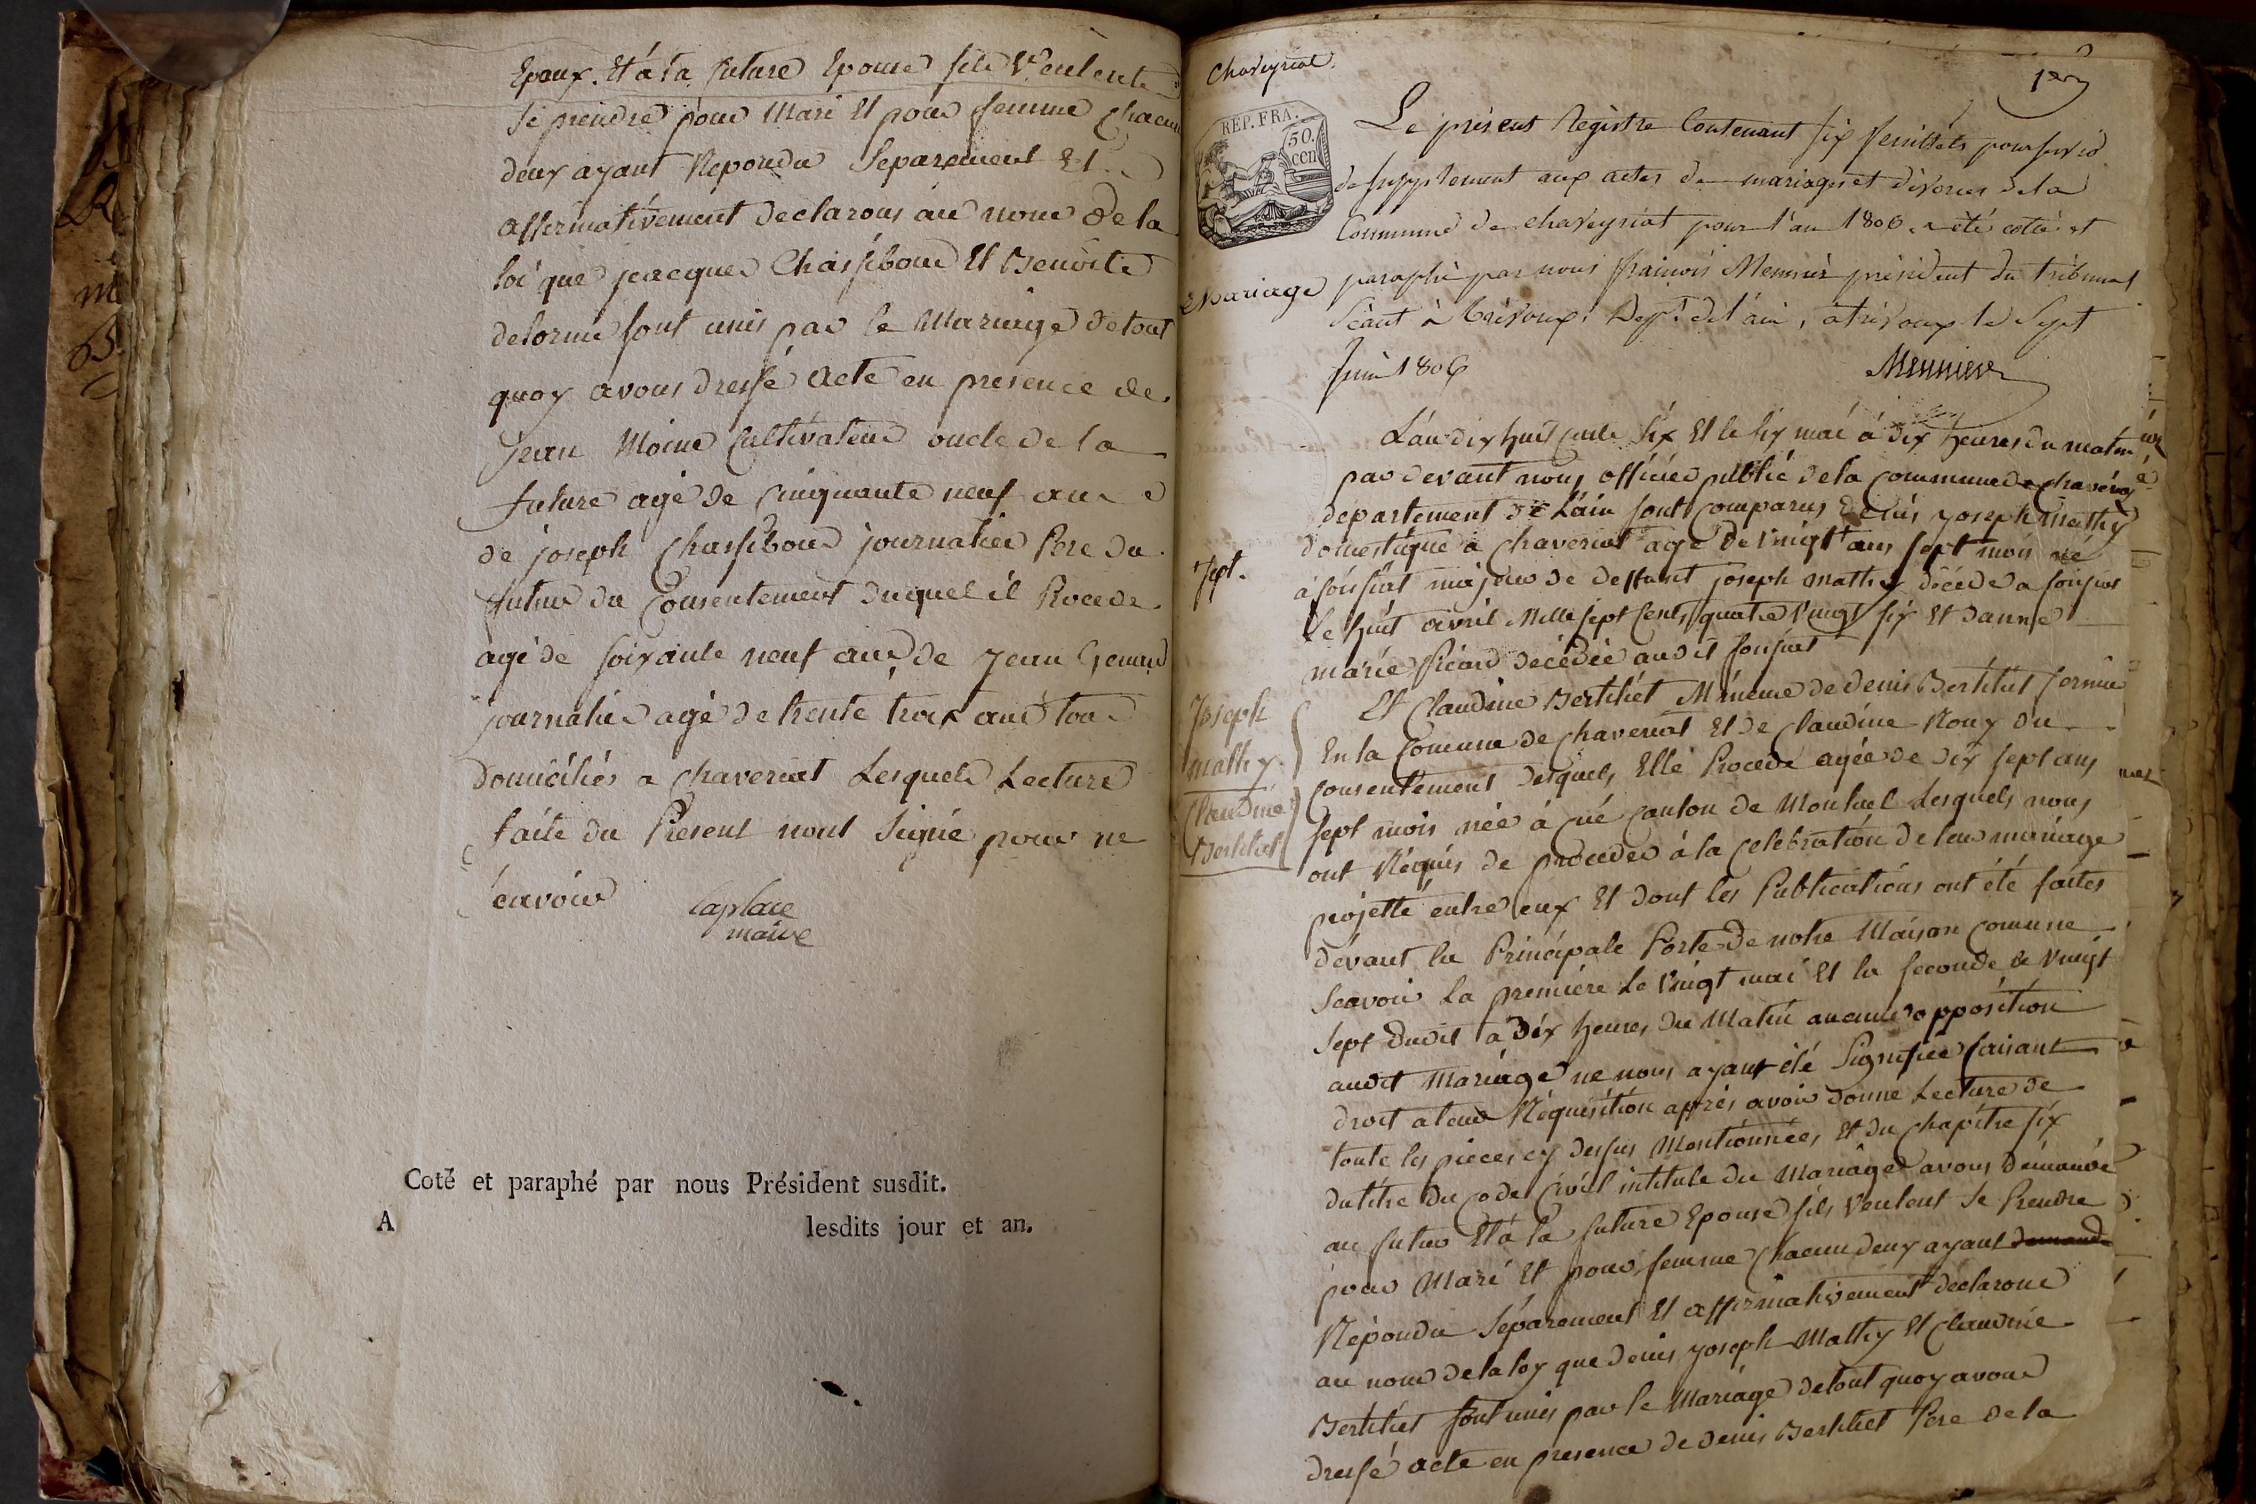 Epoux. Et á la future Epouse sils Veulent
se prendre pour Mari Et pour femme Chacun
deux ayant Repondu Separement Et
affirmativement Declarons au nom De la
loi que jacques Chassibout Et Benoite
delorme sont unis par le Mariage De tout
quoy avons dressé acte en presence de
jean Moine Cultivateur oncle de la
future agé de Cinquante neuf ans
de joseph Chassibout journalier Pere du
futur du Consentement duquel il Procede
agé de soixante neuf ans de jean
journalier agé de trente trois ans tous
Domiciliés a Chaveriat Lesquels Lecture
faite du Present nont Signé pour ne
savoir
laplace
maire
Coté et paraphé par nous Président susdit.
A lesdits jour et an.
Chaveyriat.
1er
REP. FRA.
50.
cen
Le présent Registre Contenant six feuillets pour servir
de supplement aux actes de mariages et divorces de la
Commune de chaveyriat pour l'an 1806. a été coté et
Mariage
paraphé par nous françois Mennier président du tribunal
Séant à Trévoux, Dept. de l'ain, a trévoux le Sept
Juin 1806
Mennier
L'an dix huit cents Six Et le six mai á Dix heures du matin
par devant nous officier public de la Commune de Chaveriat
departement De L'ain sont Comparus Denis joseph Mathy
Sept.
domestique a Chaveriat agé De Vingt ans sept mois né
á majeur de deffunt joseph mathy décédé a
Le huit avril Mille sept Cents quatre Vingt six Et Danne
marie décédée audit
Joseph
mathy
Claudine
Bertillet
Et Claudine Bertillet Mineure de Denis Bertillet fermier
En la Commune de Chaveriat Et de Claudine Rouy du
Consentement Desquels Elle Procede agée de Dix sept ans
sept mois née á Canton de Montluel Lesquels nous
ont Requis de proceder á la Celebration de leur mariage
projetté entre eux Et Dont les Publications ont été faites
dévant la Principale Porte De notre Maison Comune
Scavoir La premiere Le Vingt mai Et la seconde le Vingt
Sept Dudit á Dix heures Du Matin aucune opposition
audit Mariage ne nous ayant été Signifiée faisant
droit a leur Réquisition apprés avoir Donné Lecture de
toute les pieces cy dessus Mentionnées, Et du Chapitre six
du titre Du Code Civil intitule Du Mariage avons Démandé
au futur Et á la future Epouse sils Veulent Se Prendre
pour Mari Et pour femme Chacun deux ayant demandé
Répondu Séparement Et affirmativement déclarons
au nom de la loy que Denis joseph Mathy Et Claudine
Bertillet sont unis par le Mariage de tout quoy avons
dressé acte en presence de Denis Bertillet Pere de la